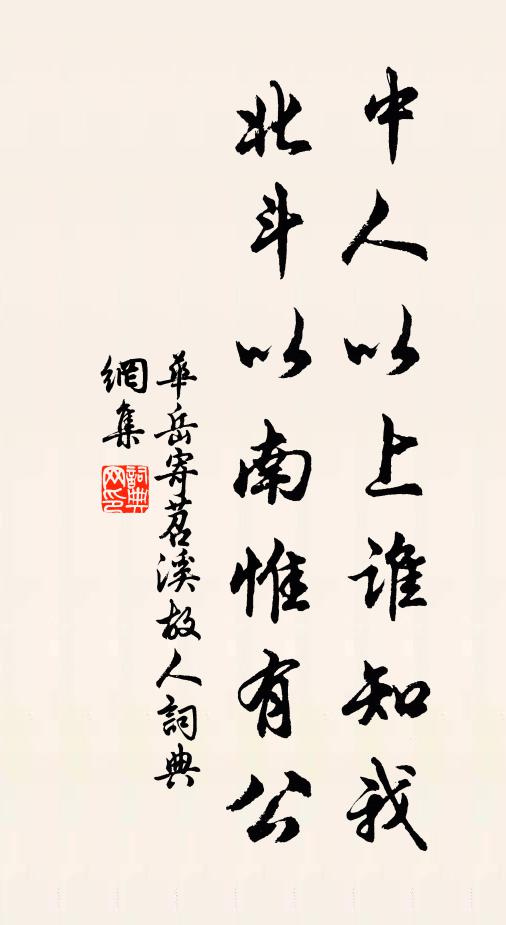 中人以上誰知我
北斗以南惟有公
華岳寄苕溪故人詞典
網集
詞典網印